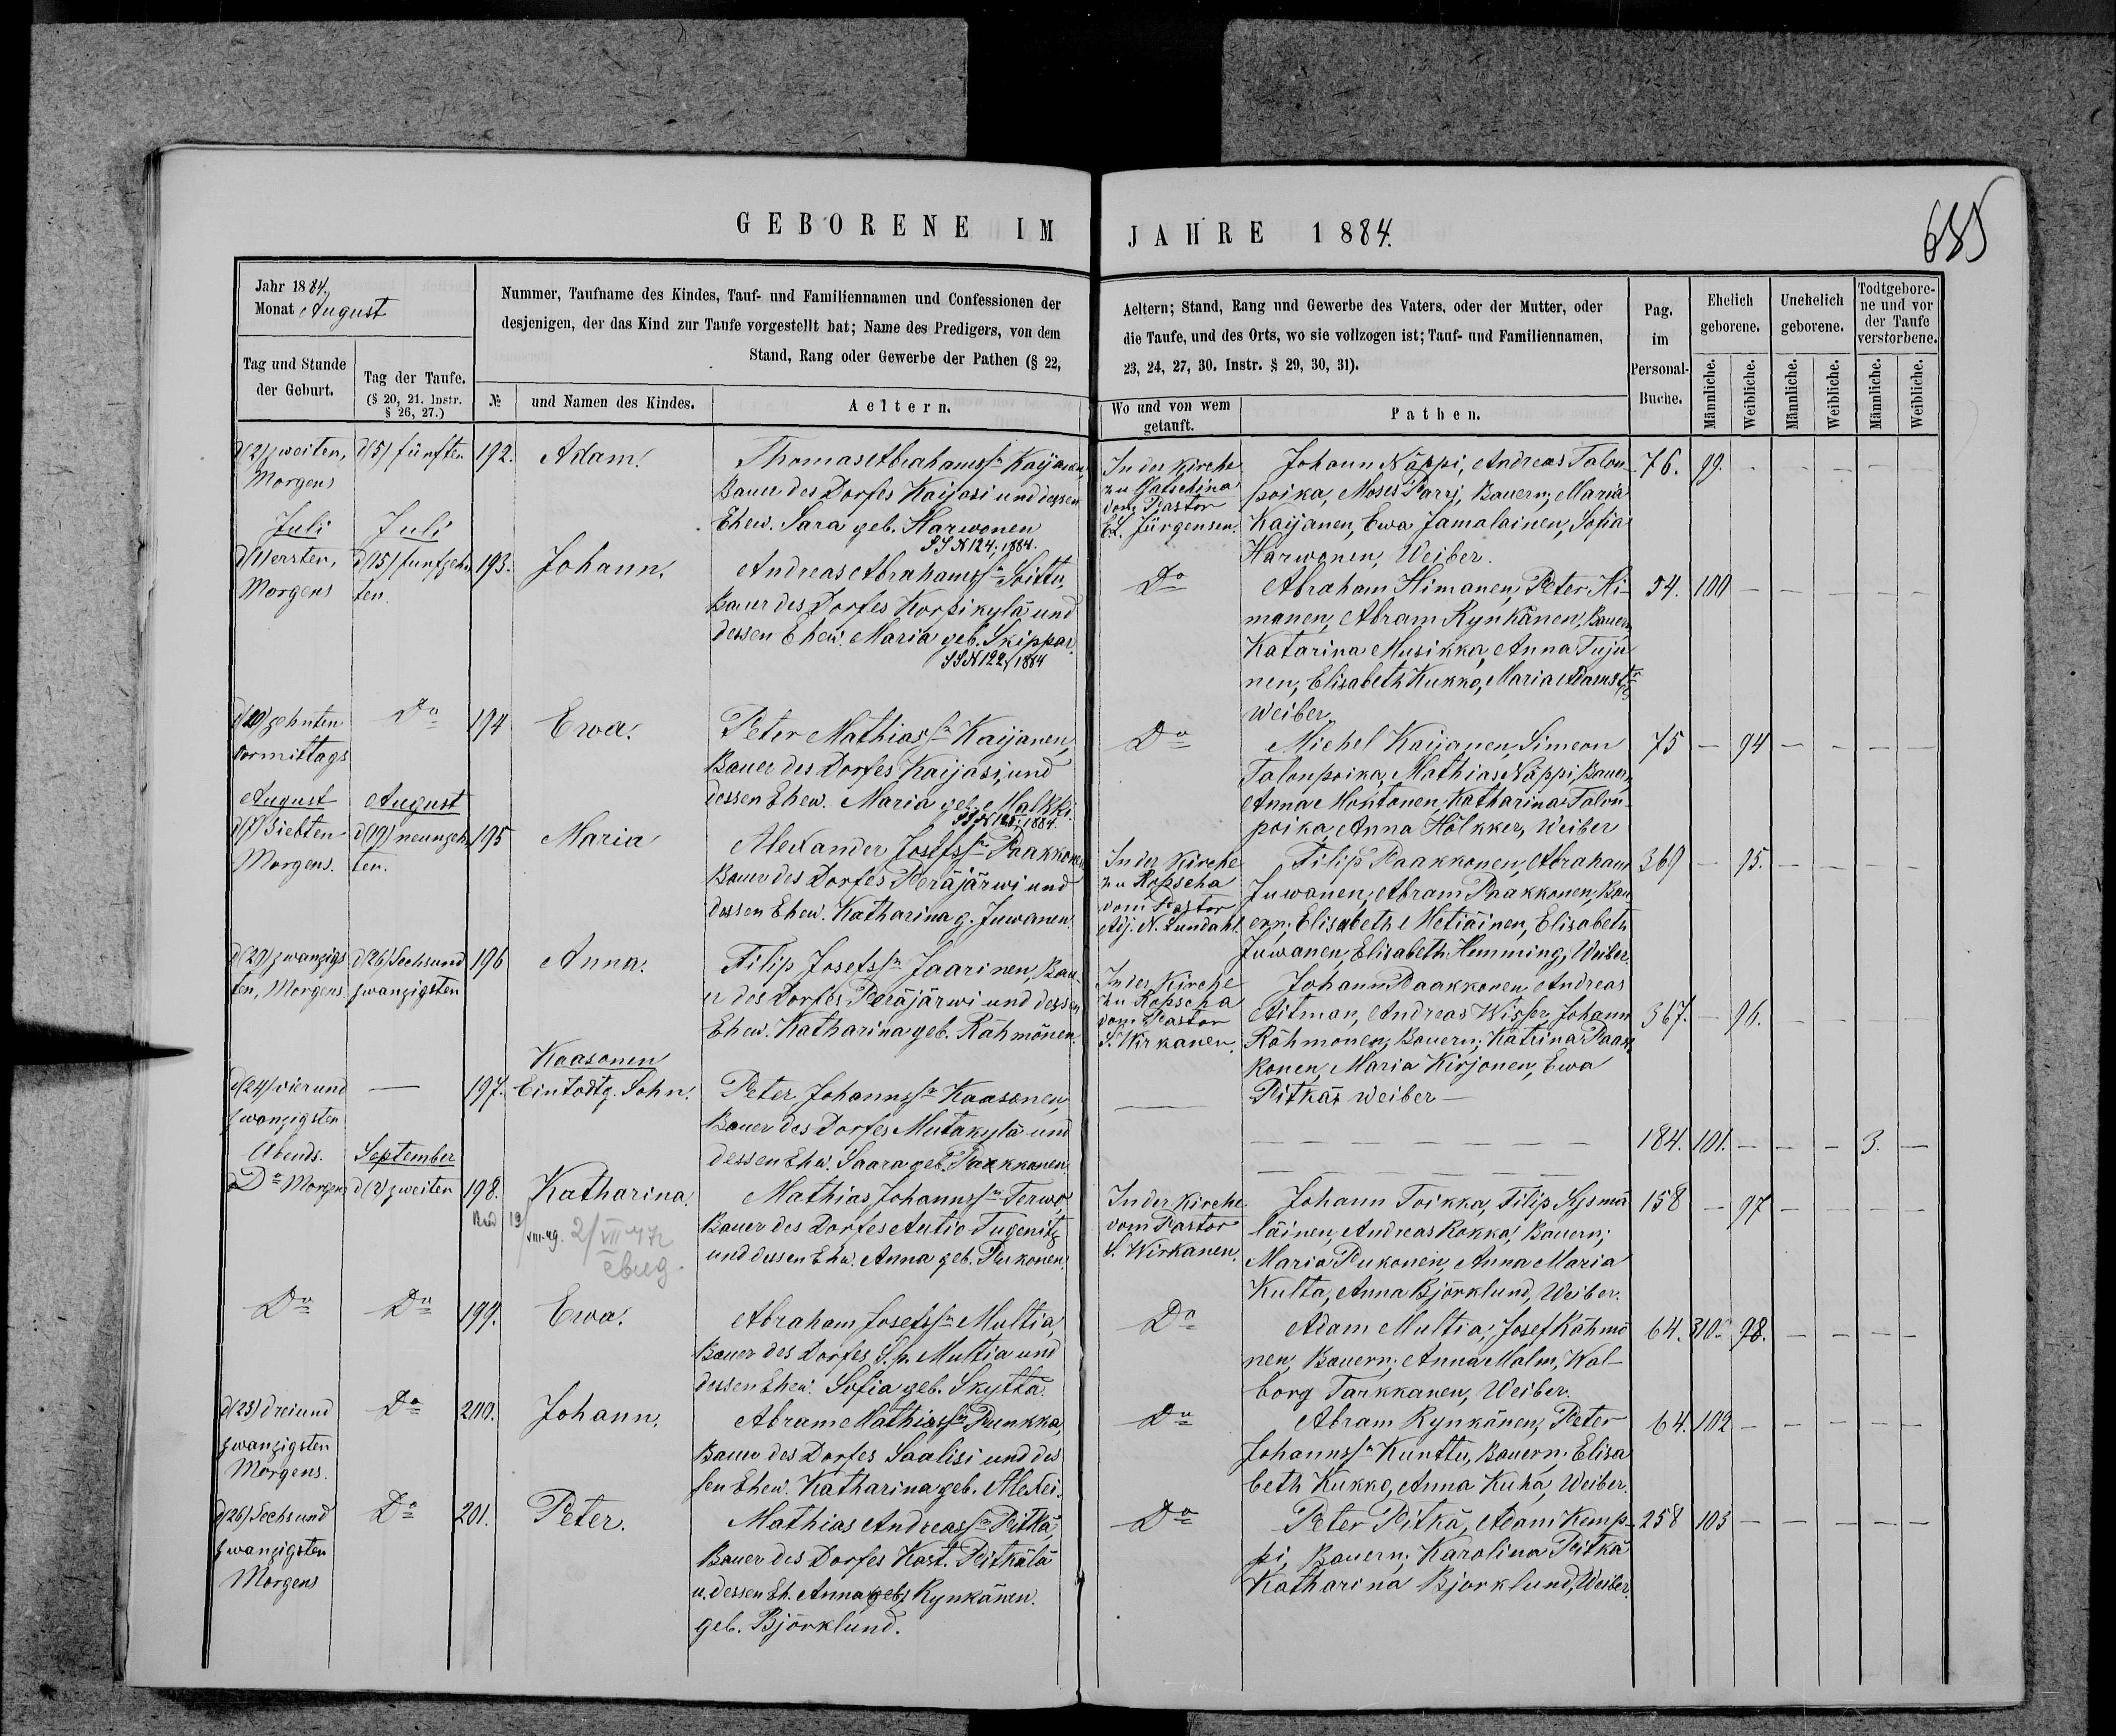 GEBORENE IM JAHRE 1884.
685
Jahr 1884.
Monat August
Tag und Stunde
der Geburt.
Tag der Taufe.
(§ 20, 21. Instr.
§ 26, 27.)
Nummer, Taufname des Kindes, Tauf- und Familiennamen und Confessionen der
desjenigen, der das Kind zur Taufe vorgestellt hat; Name des Predigers, von dem
Stand, Rang oder Gewerbe der Pathen (§ 22,
№
und Namen des Kindes.
Aeltern.
Aeltern; Stand, Rang und Gewerbe des Vaters, oder der Mutter, oder
die Taufe, und des Orts, wo sie vollzogen ist; Tauf- und Familiennamen,
23, 24, 27, 30. Instr. § 29, 30, 31).
Wo und von wem
getauft.
Pathen.
Pag.
im
Personal-
Buche.
Ehelich
geborene.
Unehelich
geborene.
Todtgebore-
ne und vor
der Taufe
verstorbene.
Männliche.
Weibliche.
Männliche.
Weibliche.
Männliche.
Weibliche.
d(2) zweiten,
Morgens
d(5) fünften
192.
Adam.
Thomas Abrahamssn Kaijanen,
Bauer des Dorfes Kaijasi und dessen
Ehew. Sara geb. Harwonen
SS N 124, 1884.
In der Kirche
zu Gatschina
vom Pastor
E.L. Jürgensen.
Johann Näppi, Andreas Talon-
poika, Moses Parri, Bauern; Maria
Kaijanen, Ewa Jamalainen, Sofia
Harwonen, Weiber.
76. 99. - - - - -
Juli
Juli
d(1) ersten,
Morgens
d(15) funfzehn
ten.
193.
Johann.
Andreas Abrahamssn Soittu,
Bauer des Dorfes Korpikylä und
dessen Ehew. Maria geb. Skippar.
SS N 122, 1884
Do
Abraham Himanen, Peter Hi-
manen, Abram Rynkänen, Bauern,
Katarina Musikka, Anna Tuju
nen, Elisabeth Kukko, Maria Adamstr
Weiber.
54. 100 - - - - -
d(10) zehnten
vormittags
Do
194
Ewa.
Peter Mathiassn Kaijanen,
Bauer des Dorfes Kaijasi, und
dessen Ehew. Maria geb. Malkki.
SS N 123, 1884.
Do
Michel Kaijanen, Simeon
Talonpoika, Mathias Näppi, Bauern,
Anna Montonen, Katharina Talon-
poika, Anna Hölkker, Weiber
75 - 94 - - - -
August
August
d(7) Siebten
Morgens.
d(19) neunzehn
ten.
195
Maria
Alexander Josefssn Paakkonen
Bauer des Dorfes Peräjärwi und
dessen Ehew. Katharina g. Juwanen.
In der Kirche
zu Ropscha
vom Pastor
Adj. N. Lundahl.
Filip Paakkonen, Abraham
Juwanen, Abram Paakkonen, Bau
ern; Elisabeth Metiäinen, Elisabeth
Juwanen, Elisabeth Hemming, Weiber.
369 - 95. - - - -
d(20) zwanzigs
ten, Morgens
d(26) Sechsund
zwanzigsten
196
Anna.
Filip Josefssn Jaarinen, Bau
er des Dorfes Peräjärwi und dessen
Ehew. Katharina geb. Rähmönen.
In der Kirche
zu Ropscha
vom Pastor
S. Wirkanen.
Johann Paakkonen, Andreas
Aitman, Andreas Wisser, Johann
Rähmonen, Bauern; Katrina Paak
konen, Maria Kirjonen, Ewa
Pitkäs Weiber -
367. - 96. - - - -
Kaasonen
d(24) vierund
zwanzigsten
Abends.
—
197.
Ein todtg. Sohn.
Peter Johannssn Kaasonen,
Bauer des Dorfes Mutakylä und
dessen Ehw. Saara geb. Paakkonen.
—
184. 101. - - - 3. -
September
Do Morgens
d(2) zweiten
198.
Katharina.
Mathias Johannssn Terwo,
Bauer des Dorfes Autio Tugenitz
und dessen Ehw. Anna geb. Pukonen.
In der Kirche
vom Pastor
S. Wirkanen.
Johann Toikka, Filip Sysmä
läinen, Andreas Kokka, Bauern;
Maria Pukonen, Anna Maria
Kulta, Anna Björklund, Weiber.
158 - 97 - - - -
Do
Do
199.
Ewa.
Abraham Josefssn Multia,
Bauer des Dorfes S. p. Multia und
dessen Ehew. Sofia geb. Skyttä.
Do
Adam Multia, Josef Kähmö
nen, Bauern; Anna Malm, Wal-
borg Tarkkanen, Weiber.
64. 310. 98. - - - -
d(23) dreiund
zwanzigsten
Morgens.
Do
200.
Johann.
Abram Mathiassn Punkka,
Bauer des Dorfes Saalisi und des
sen Ehew. Katharina geb. Alexei.
Do
Abram Rynkänen, Peter
Johannssn Kunttu, Bauern; Elisa
beth Kukko, Anna Kuha, Weiber.
64. 102 - - - - -
d(26) Sechsund
zwanzigsten
Morgens
Do
201.
Peter.
Mathias Andreassn Pitkä,
Bauer des Dorfes Kast. Pitkälä
u. dessen Eh. Anna geb. Rynkänen.
geb. Björklund.
Do
Peter Pitkä, Adam Kemp-
pi, Bauern; Karolina Pitkä
Katharina Bjorklund, Weiber.
258 103 - - - - -